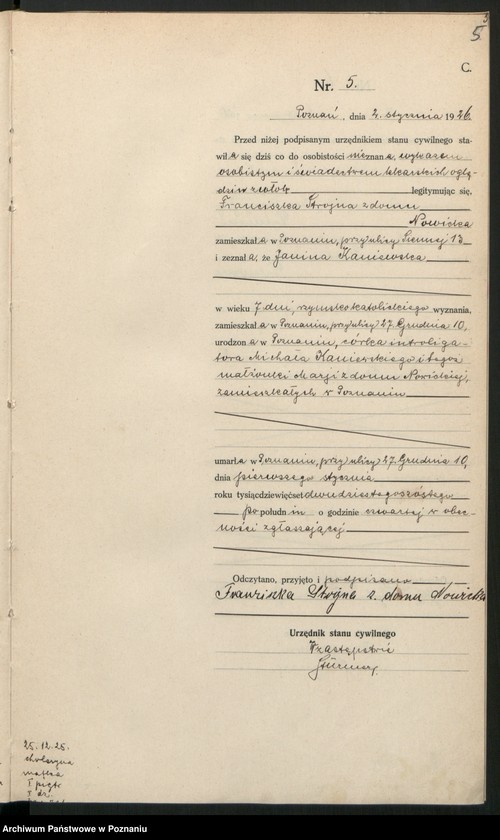 3
5
C.
Nr. 5.
Poznań, dnia 2. stycznia 1926
Przed niżej podpisanym urzędnikiem stanu cywilnego sta-
wiła się dziś co do osobistości nieznana, wykazem
osobistym i świadectwem lekarskich oglę-
dzin zwłok legitymując się,
Franciszka Strojna z domu
Nowicka
zamieszkała w Poznaniu, przy ulicy Siennej 13
i zeznała, że Janina Kaniewska
w wieku 7 dni, rzymskokatolickiego wyznania,
zamieszkała w Poznaniu, przy ulicy 27. Grudnia 10,
urodzona w Poznaniu, córka introliga-
tora Michała Kaniewskiego i tegoż
małżonki Marji z domu Nowickiej,
zamieszkałych w Poznaniu
umarła w Poznaniu, przy ulicy 27. Grudnia 10,
dnia pierwszego stycznia
roku tysiącdziewięćset dwudziestegoszóstego
po połudn iu o godzinie czwartej w obec-
ności zgłaszającej
Odczytano, przyjęto i podpisano
Franziszka Strojna z. domu Nowicka
Urzędnik stanu cywilnego
W zastępstwie
25.12.25.
matka
I piętr
Archiwum Państwowe w Poznaniu